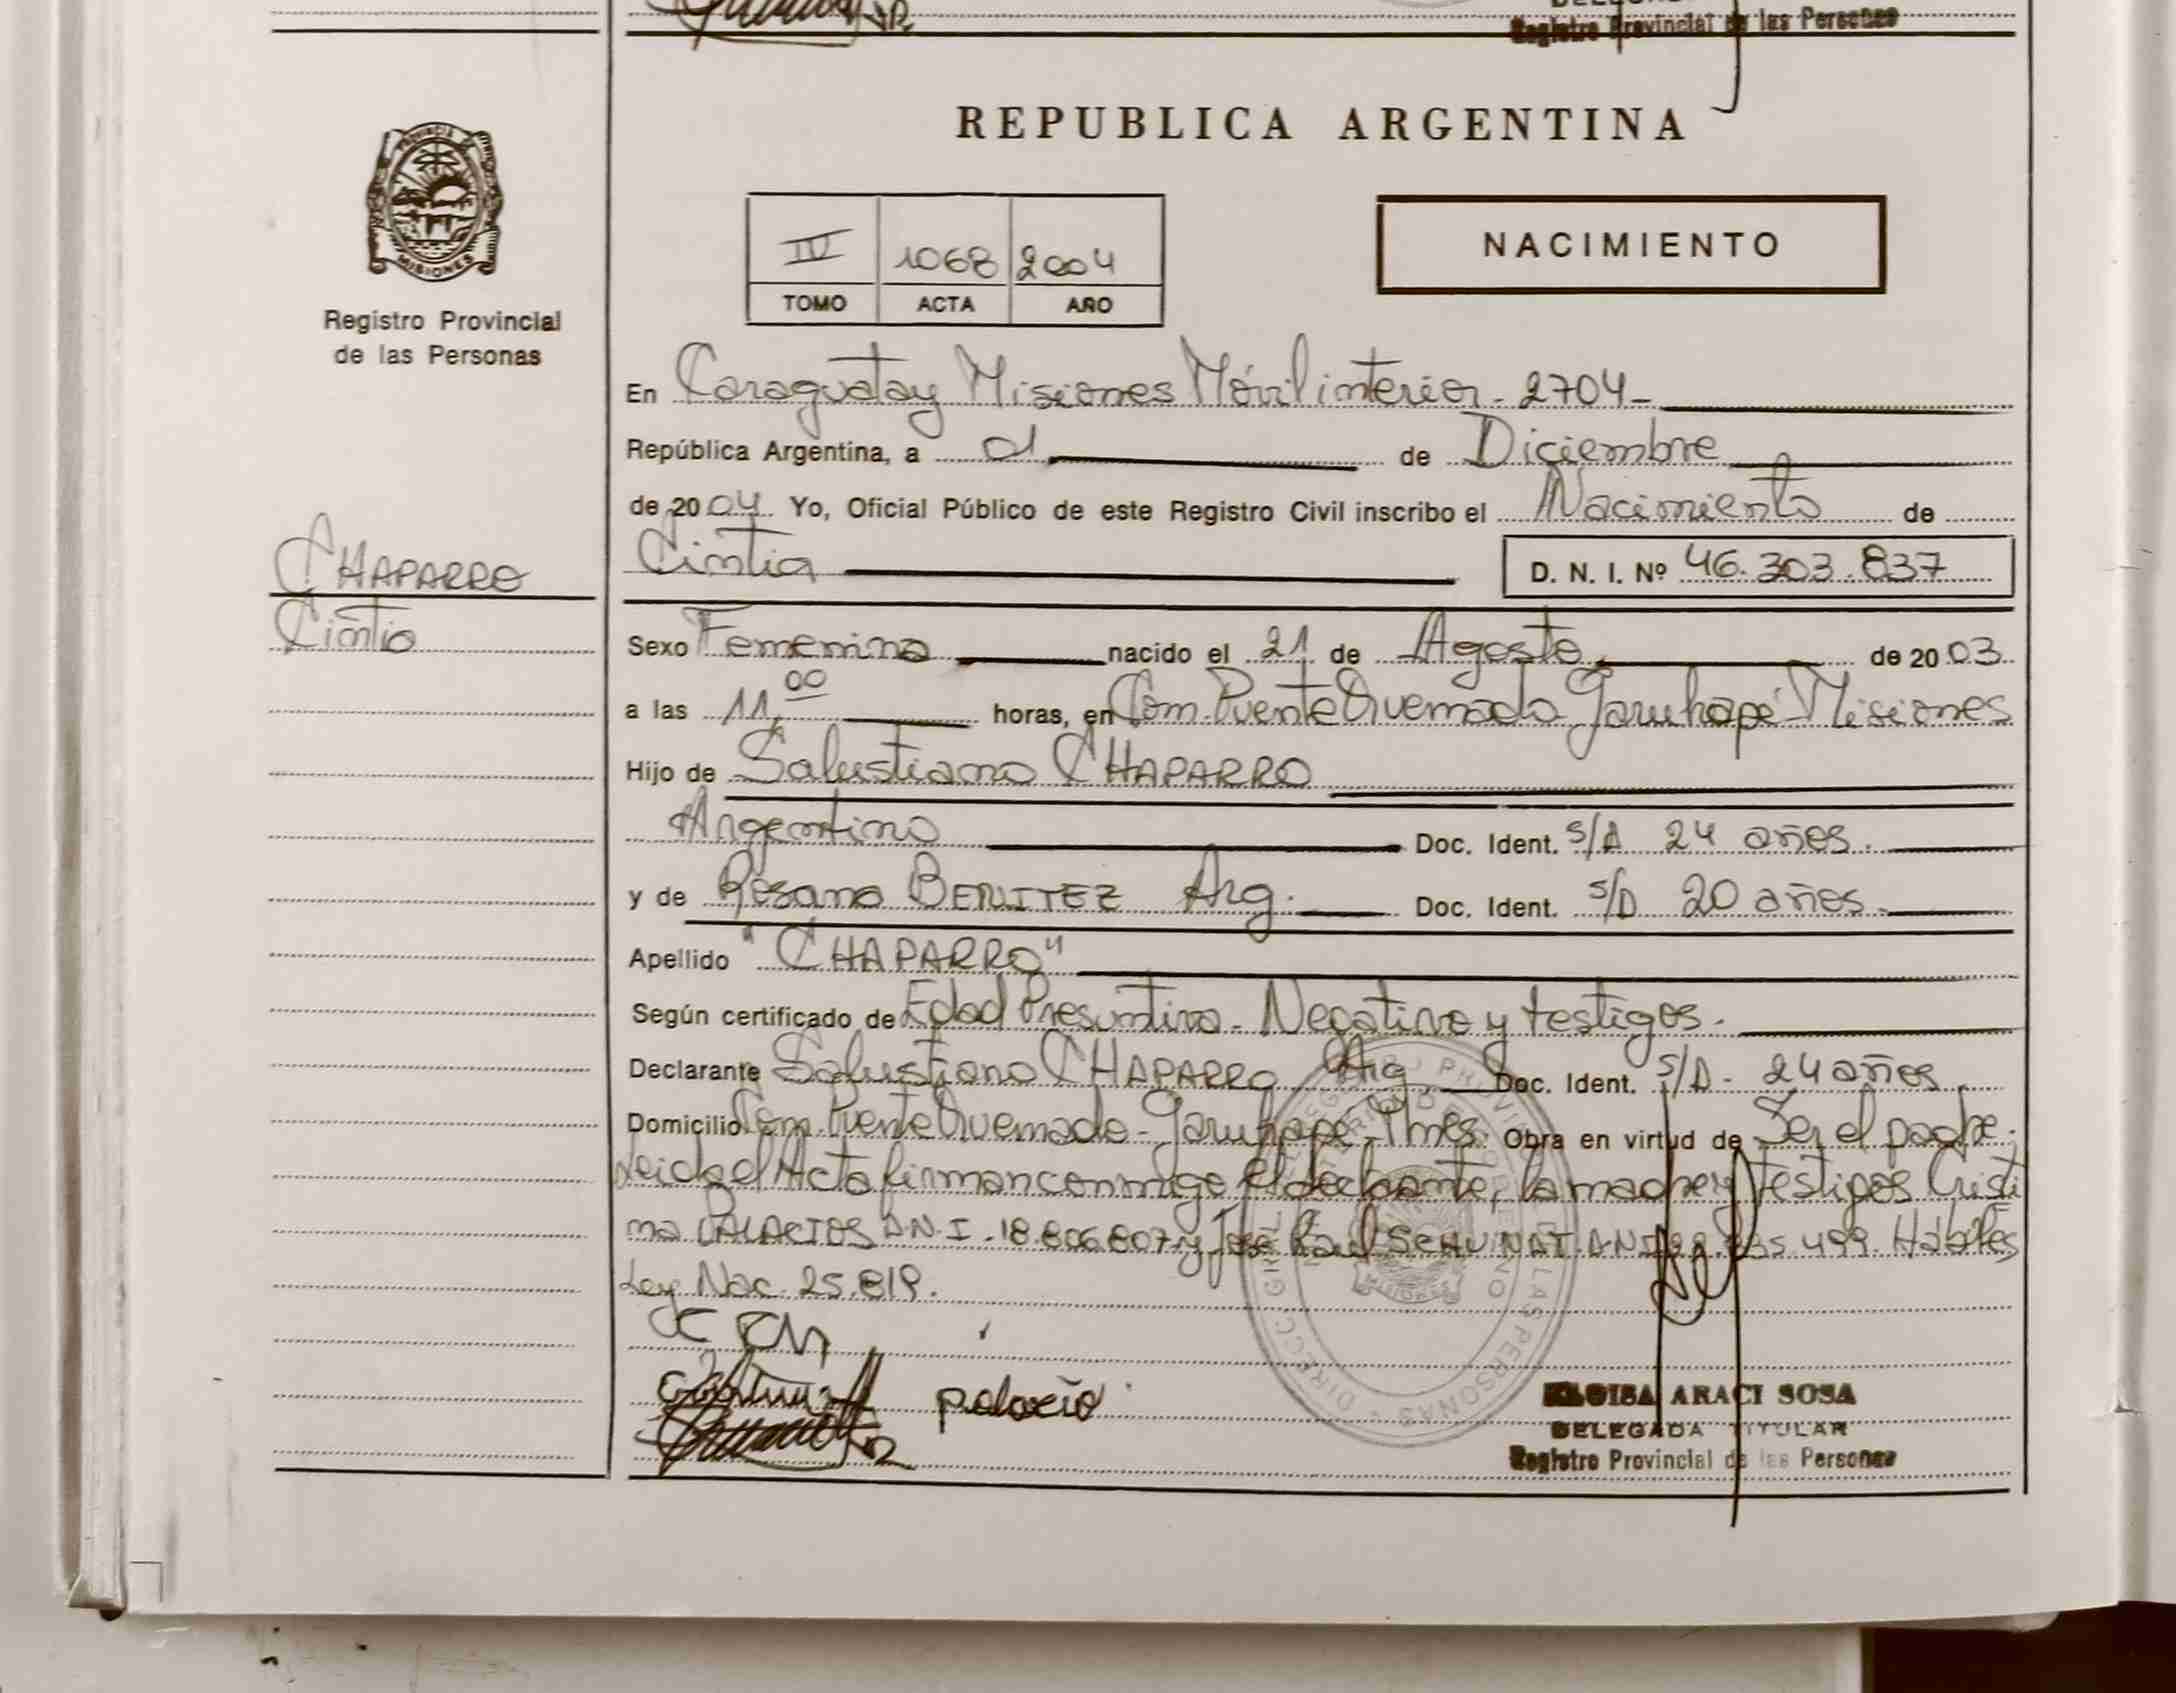 Registro Provincial de las Personas
REPUBLICA ARGENTINA
PROVINCIA DE
MISIONES
Registro Provincial
de las Personas
IV 1068 2004
TOMO ACTA AÑO
NACIMIENTO
En Caraguatay Misiones Móvil interior - 2704 -
República Argentina, a 01 de Diciembre
de 2004 Yo, Oficial Público de este Registro Civil inscribo el Nacimiento de
CHAPARRO
Cintia
Cintia D. N. I. Nº 46.303.837
Sexo Femenino nacido el 21 de Agosto de 2003
a las 11,00 horas, en Com. Puente Quemado Garuhapé - Misiones
Hijo de Salustiano CHAPARRO
Argentino Doc. Ident. S/D 24 años.
y de Rosana BENITEZ Arg. Doc. Ident. S/D 20 años.
Apellido "CHAPARRO"
Según certificado de Edad Presuntiva - Negativo y testigos.
Declarante Salustiano CHAPARRO Arg Doc. Ident. S/D - 24 años
Domicilio Com. Puente Quemado - Garuhapé - Mnes. Obra en virtud de Ser el padre.
Leida el Acta firman conmigo el declarante, la madre y testigos Cristi
na PALACIOS D.N.I. 18.806.807 y José Raul D.N.I. 499 Hábiles
Ley Nac. 25.819.
palacio
ELOISA ARACI SOSA
DELEGADA TITULAR
Registro Provincial de las Personas